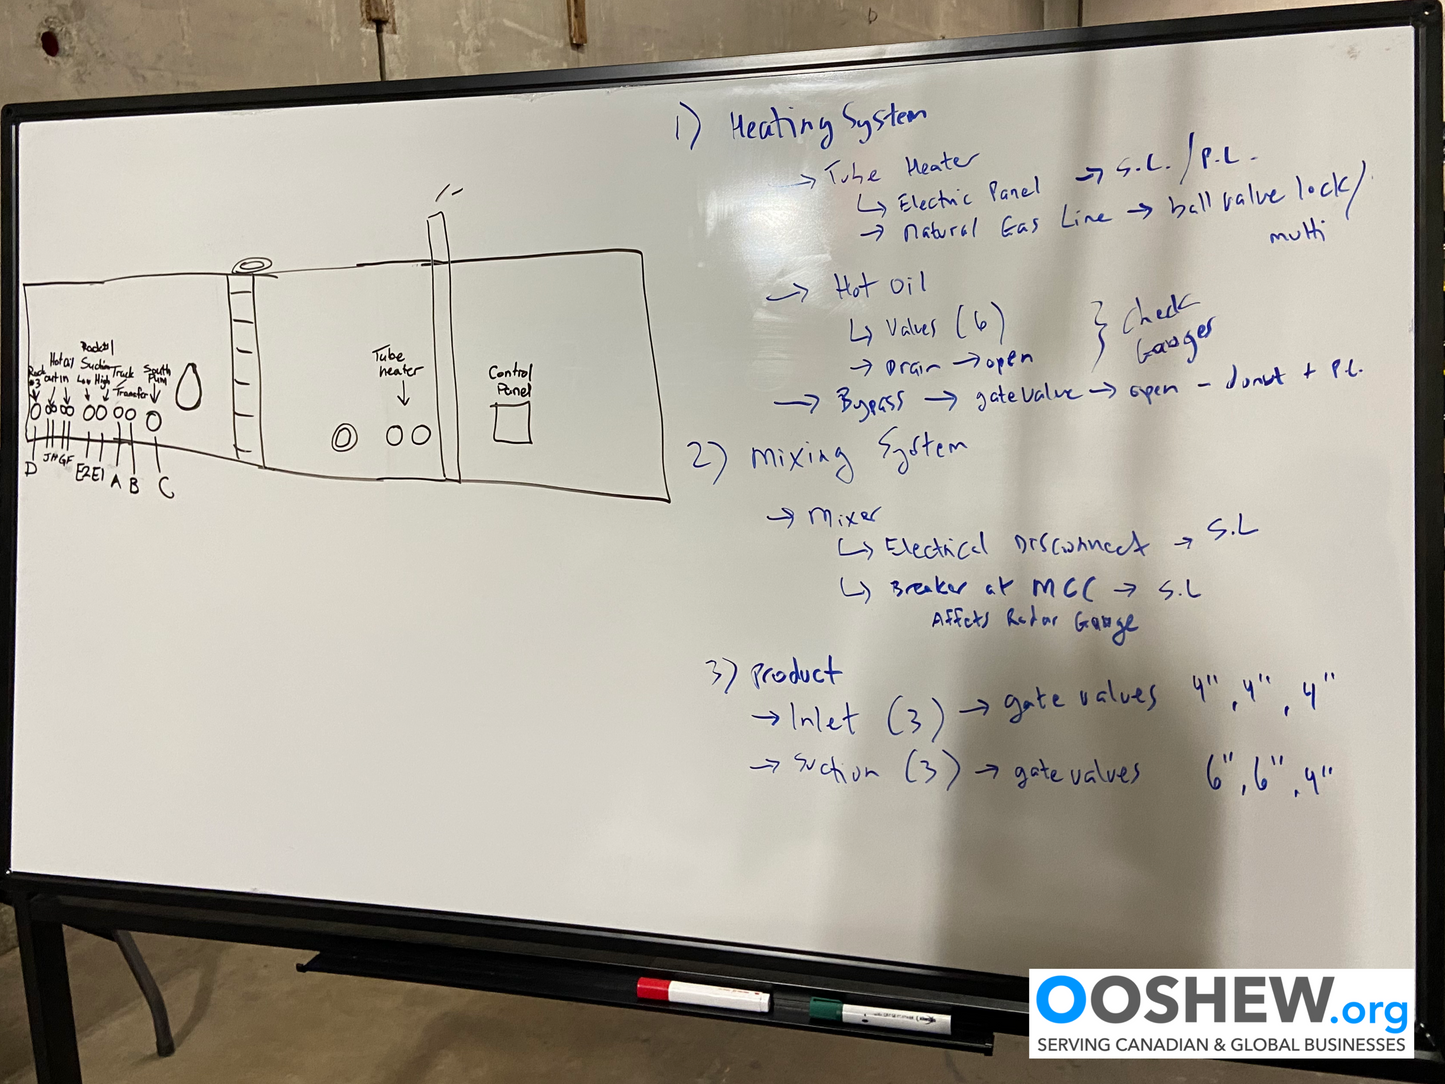 1) Heating System
→ Tube Heater
↳ Electric Panel → S.L. / P.L.
→ Natural Gas Line → ball valve lock/
multi
→ Hot Oil
↳ Values (6)
→ Drain → open
} Check
Gauges
→ Bypass → gate valve → open - donut + P.L.
2) Mixing System
→ Mixer
↳ Electrical Disconnect → S.L
↳ Breaker at MCC → S.L
Affects Radar Gauge
3) Product
→ Inlet (3) → gate values 4", 4", 4"
→ Suction (3) → gate values 6", 6", 4"
Rack
#3
Hot Oil
out in
Suction
Low High
Truck
Transfer
South
Pum
Tube
heater
Control
Panel
D
JH GF
E2 E1
A B
C
OOSHEW.org
SERVING CANADIAN & GLOBAL BUSINESSES